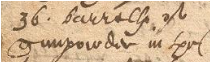 36. barrells of
gunpowder in